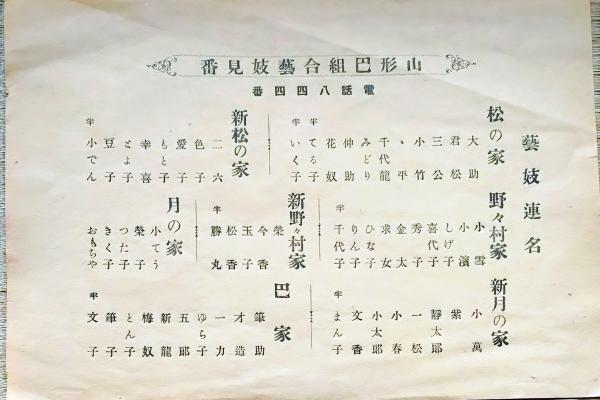 山形巴組合藝妓見番
電話八四四番
藝妓連名
松の家
大助
君松
三公
小竹
ゝ平
千代龍
みどり
仲助
花奴
半てる子
半いく子
新松の家
二六
色子
愛子
もと子
幸喜
とよ子
豆子
半小でん
野々村家
小雪
小濱
しげ子
喜代子
秀子
金太
求女
ひな子
りん子
半千代子
新野々村家
榮
今香
玉子
松香
半勝丸
月の家
小てう
榮子
つた子
きく子
おもちや
新月の家
小萬
紫
靜太郎
一松
小春
小太郎
文香
半まん子
巴家
筆助
才造
一力
ゆら子
五郎
新龍
梅奴
とん子
筆子
半文子